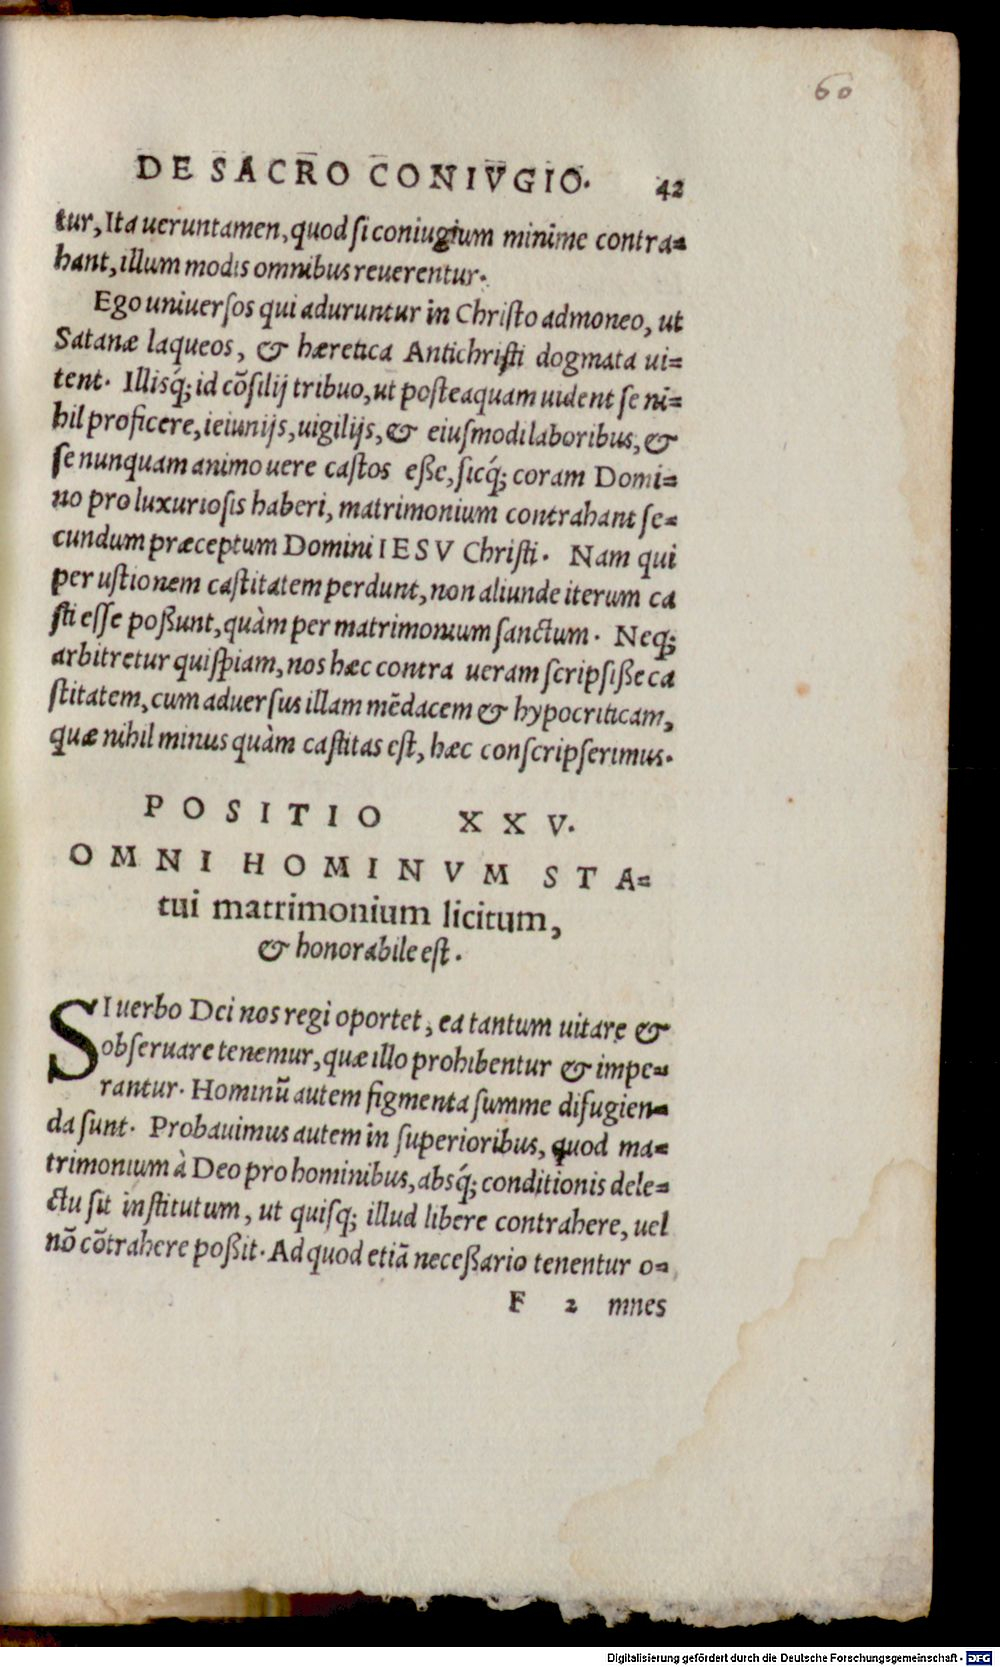 60
DE SACRO CONIVGIO. 42
tur, Ita ueruntamen, quod si coniugium minime contra=
hant, illum modis omnibus reuerentur.
Ego uniuersos qui aduruntur in Christo admoneo, ut
Satanæ laqueos, & hæretica Antichristi dogmata ui=
tent. Illisq́; id cõsilij tribuo, ut posteaquam uident se ni=
hil proficere, ieiunijs, uigilijs, & eiusmodi laboribus, &
se nunquam animo uere castos eße, sicq́; coram Domi=
no pro luxuriosis haberi, matrimonium contrahant se=
cundum præceptum Domini IESV Christi. Nam qui
per ustionem castitatem perdunt, non aliunde iterum ca
sti esse poßunt, quàm per matrimonium sanctum. Neq;
arbitretur quispiam, nos hæc contra ueram scripsiße ca
stitatem, cum aduersus illam mẽdacem & hypocriticam,
quæ nihil minus quàm castitas est, hæc conscripserimus.
POSITIO XXV.
OMNI HOMINVM STA=
tui matrimonium licitum,
& honorabile est.
SI uerbo Dei nos regi oportet, ea tantum uitare &
obseruare tenemur, quæ illo prohibentur & impe=
rantur. Hominũ autem figmenta summe difugien=
da sunt. Probauimus autem in superioribus, quod ma=
trimonium à Deo pro hominibus, absq́; conditionis dele=
ctu sit institutum, ut quisq; illud libere contrahere, uel
nõ cõtrahere poßit. Ad quod etiã neceßario tenentur o=
F 2 mnes
Digitalisierung gefördert durch die Deutsche Forschungsgemeinschaft - DFG